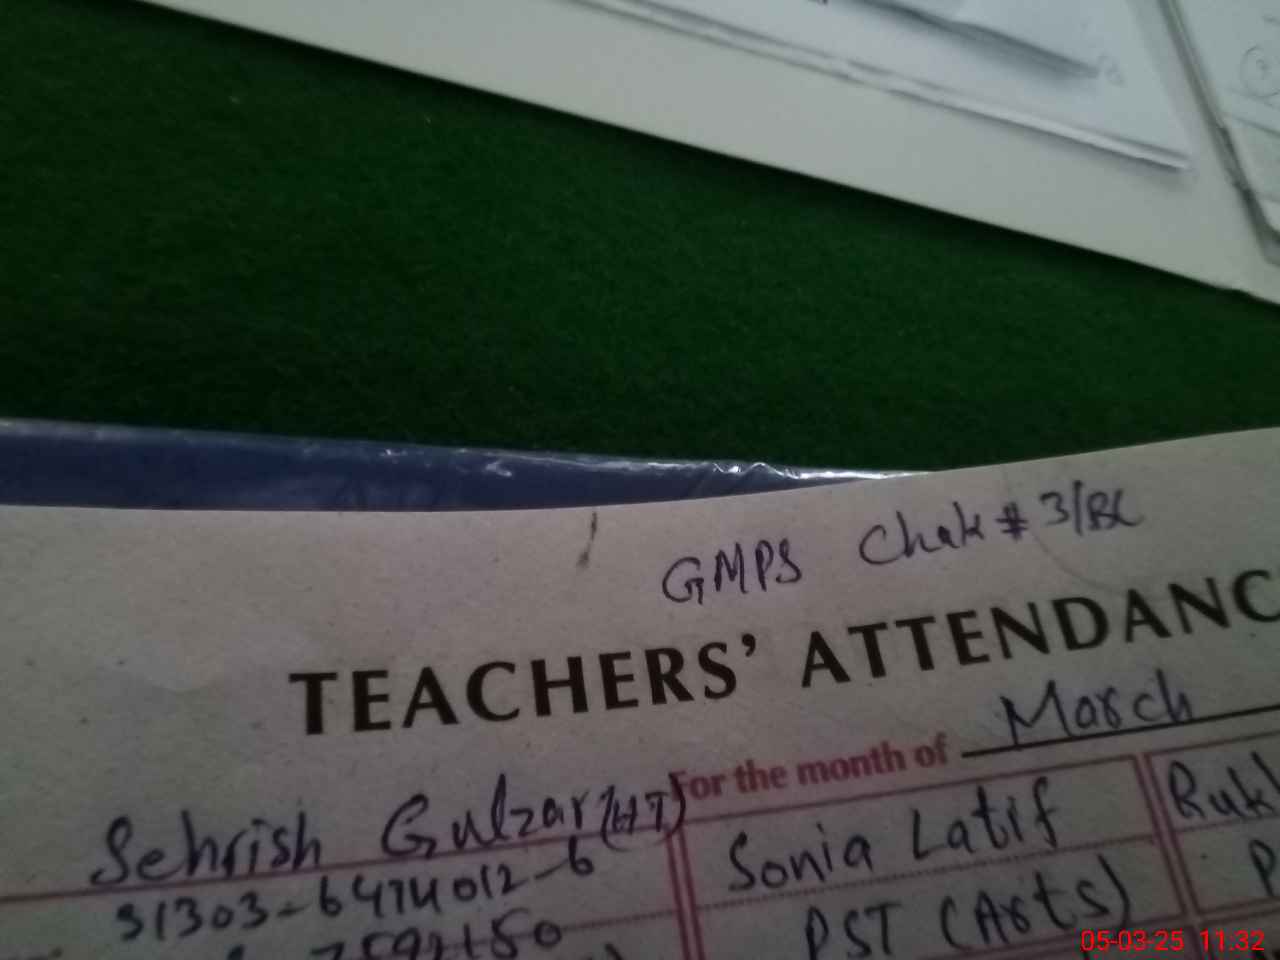 GMPS Chak # 3/BC
TEACHERS' ATTENDANC
For the month of March
Sehrish Gulzar (HT)
Sonia Latif
Ruk
31303-6474012-6
PST (Arts)
P
05-03-25 11:32